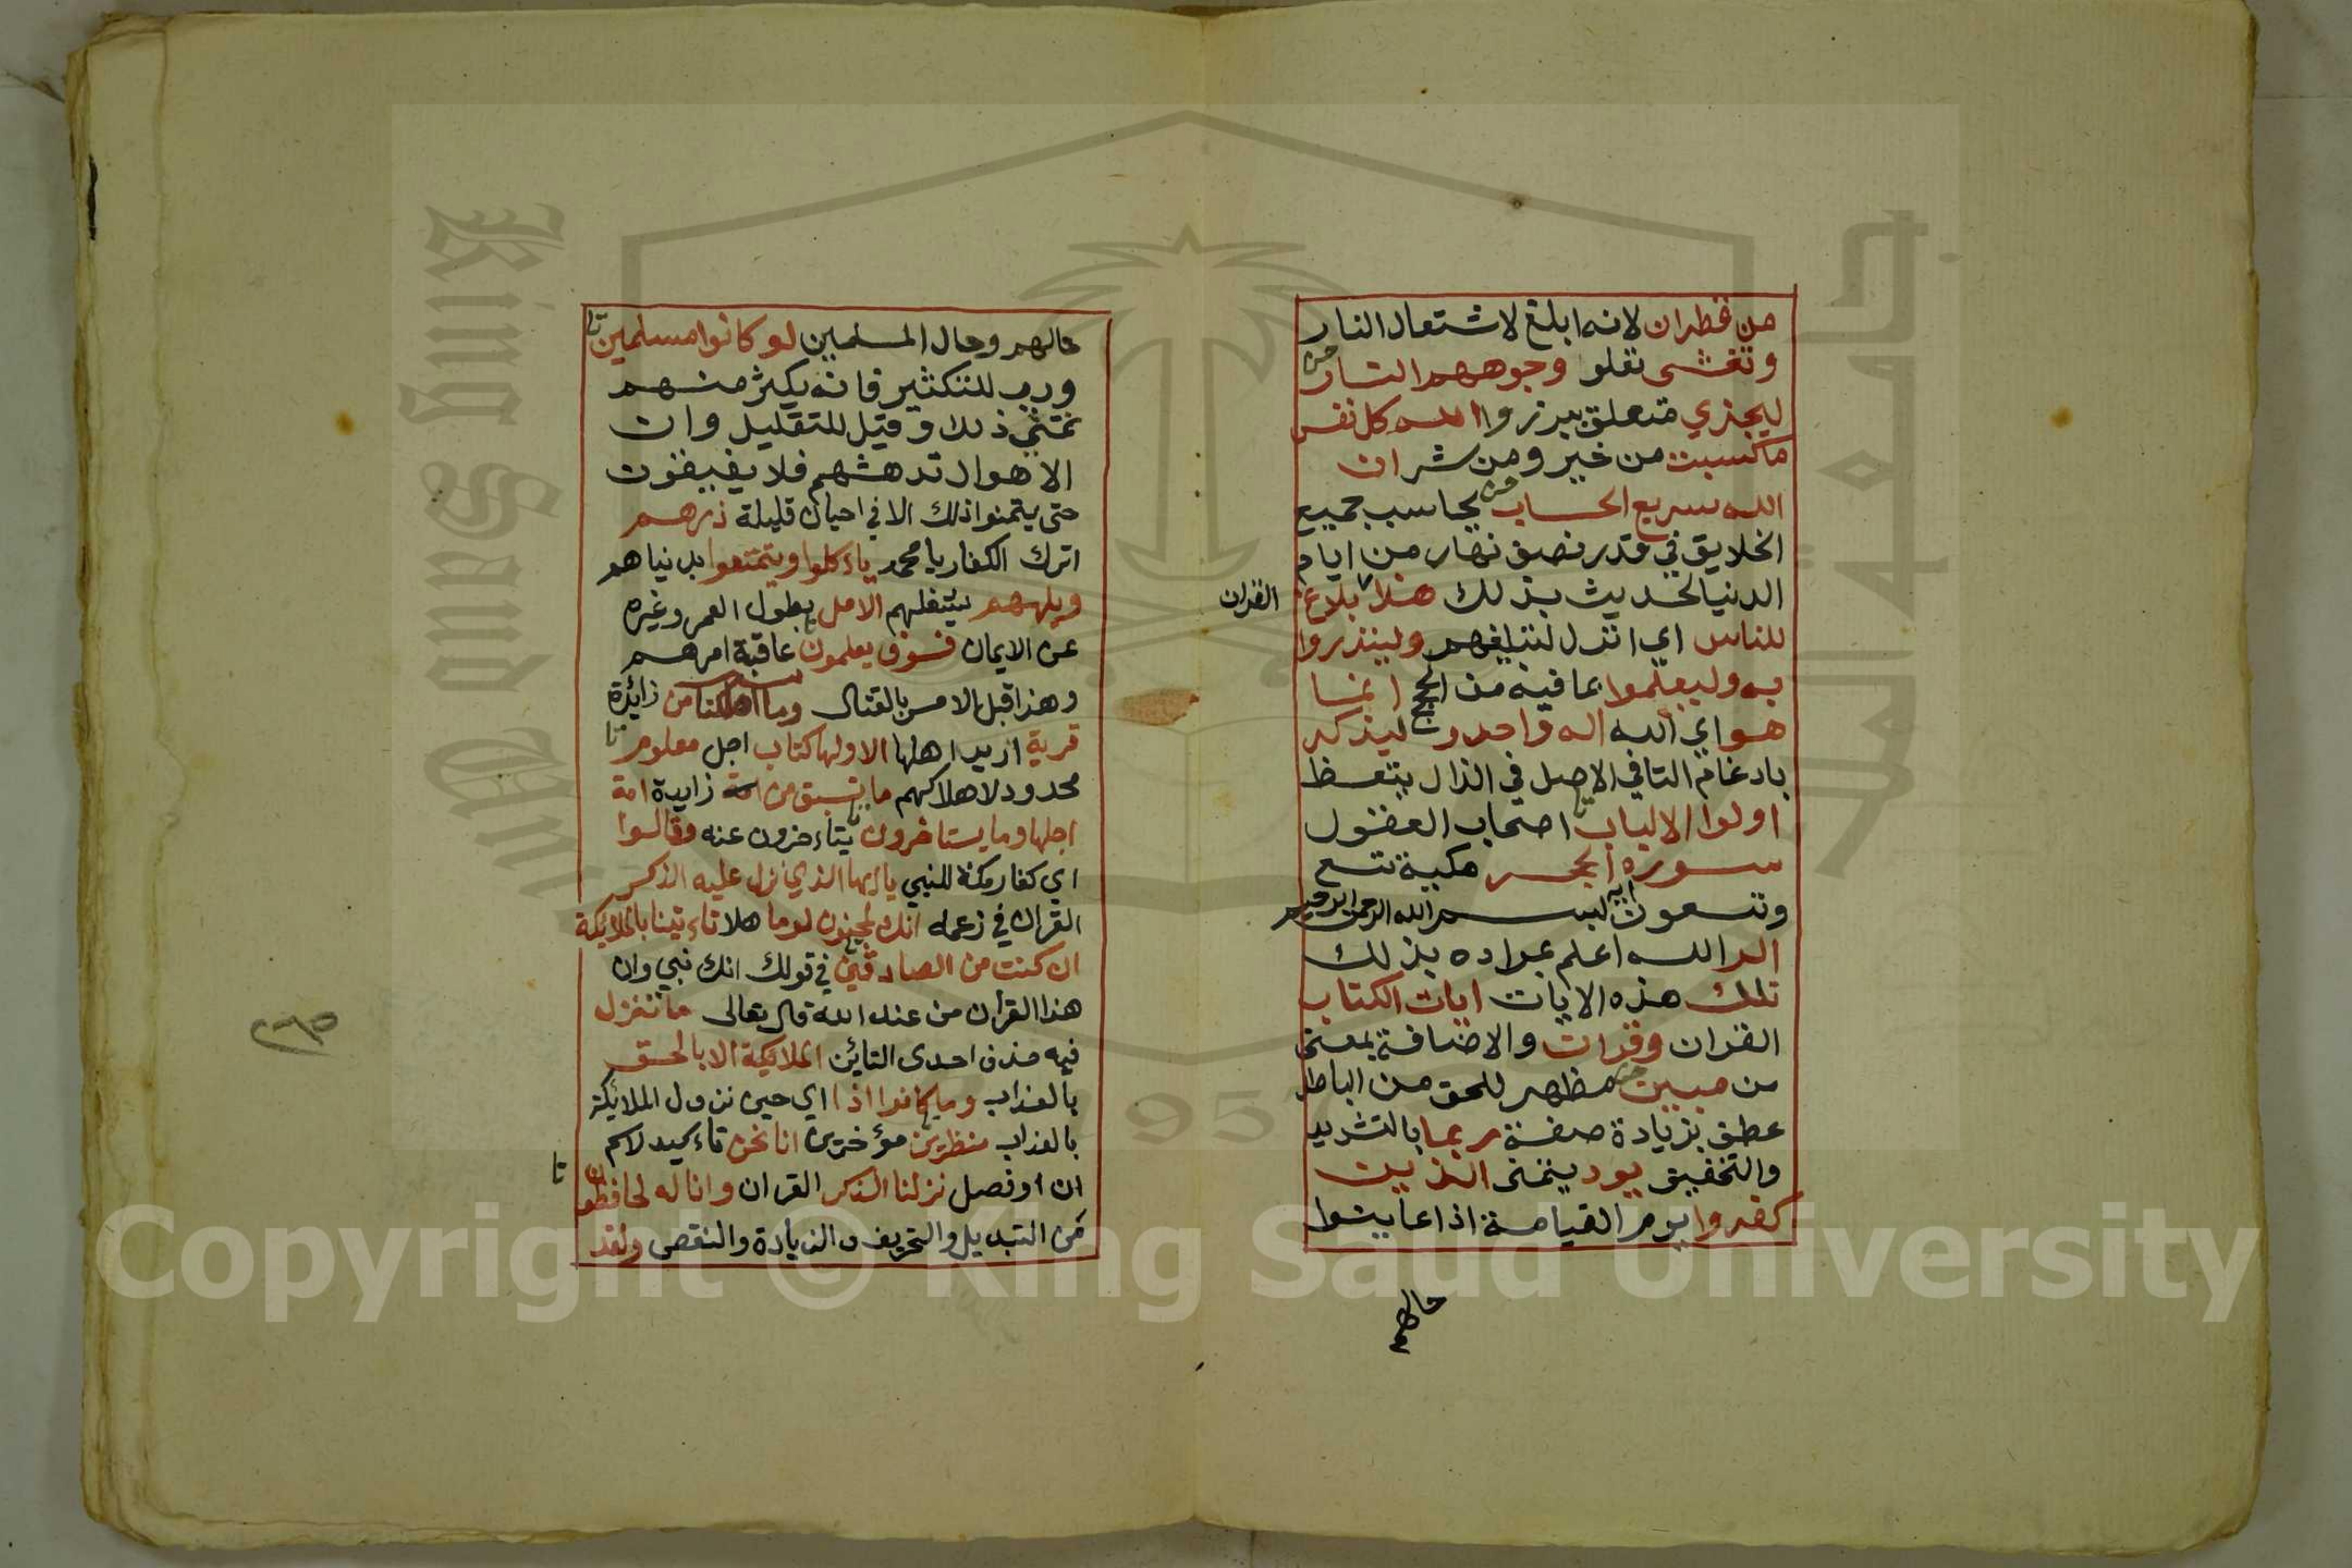 من قطران لانه ابلغ لاشتعال النار
وتغشى تعلو وجوههم النار
ليجزي متعلق ببرزوا الله كل نفس
ما كسبت من خير ومن شر ان
الله سريع الحساب يحاسب جميع
الخلايق في قدر نصف نهار من ايام
الدنيا لحديث بذلك هذا بلاغ
القران
للناس اي انزل لتبليغهم ولينذروا
به وليعلموا بما فيه من الحجج انما
هو اي الله اله واحد وليذكر
بادغام التا في الاصل في الذال يتعظ
اولوا الالباب اصحاب العقول
سورة الحجر مكية تسع
وتسعون اية بسم الله الرحمن الرحيم
الر الله اعلم بمراده بذلك
تلك هذه الايات ايات الكتاب
القران وقران والاضافة بمعنى
من مبين مظهر للحق من الباطل
عطف بزيادة صفة ربما بالتشديد
والتخفيف يود يتمنى الذين
كفروا يوم القيامة اذا عاينوا
حالهم
حالهم وحال المسلمين لو كانوا مسلمين
ورب للتكثير فانه يكثر منهم
تمنى ذلك وقيل للتقليل وان
الاهوال تدهشهم فلا يفيقون
حتى يتمنوا ذلك الا في احيان قليلة ذرهم
اترك الكفار يا محمد ياءكلوا ويتمتعوا بدنياهم
ويلههم يشغلهم الامل بطول العمر وغيره
عن الايمان فسوف يعلمون عاقبة امرهم
وهذا قبل الامر بالقتال وما اهلكنا من زائدة
قرية اريد اهلها الا ولها كتاب اجل معلوم
محدود لاهلاكهم ما تسبق من زايدة امة
اجلها وما يستاخرون يتاءخرون عنه وقالوا
اي كفار مكة للنبي ياايها الذي نزل عليه الذكر
القران في زعمه انك لمجنون لوما هلا تاءتينا بالملايكة
ان كنت من الصادقين في قولك انك نبي وان
هذا القران من عند الله قال تعالى ما تنزل
فيه حذف احدى التائين الملايكة الا بالحق
بالعذاب وما كانوا اذا اي حين نزول الملائكة
بالعذاب منظرين مؤخرين انا نحن تاءكيد لاسم
ان او فصل نزلنا الذكر القران وانا له لحافظون
من التبديل والتحريف والزيادة والنقص ولقد
٢٦٥
Copyright © King Saud University
King Saud University
1957
جامعة الملك